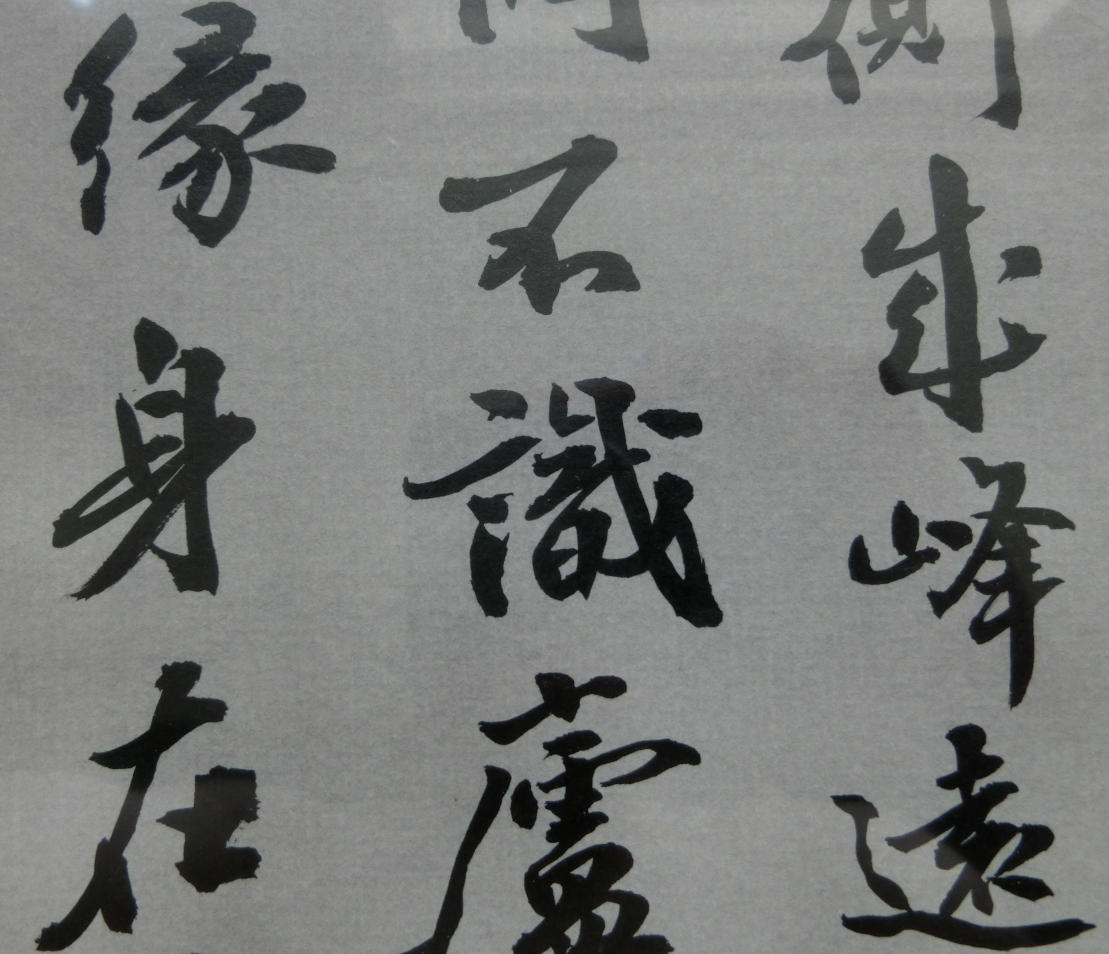 側成峰遠
同不識廬
緣身在